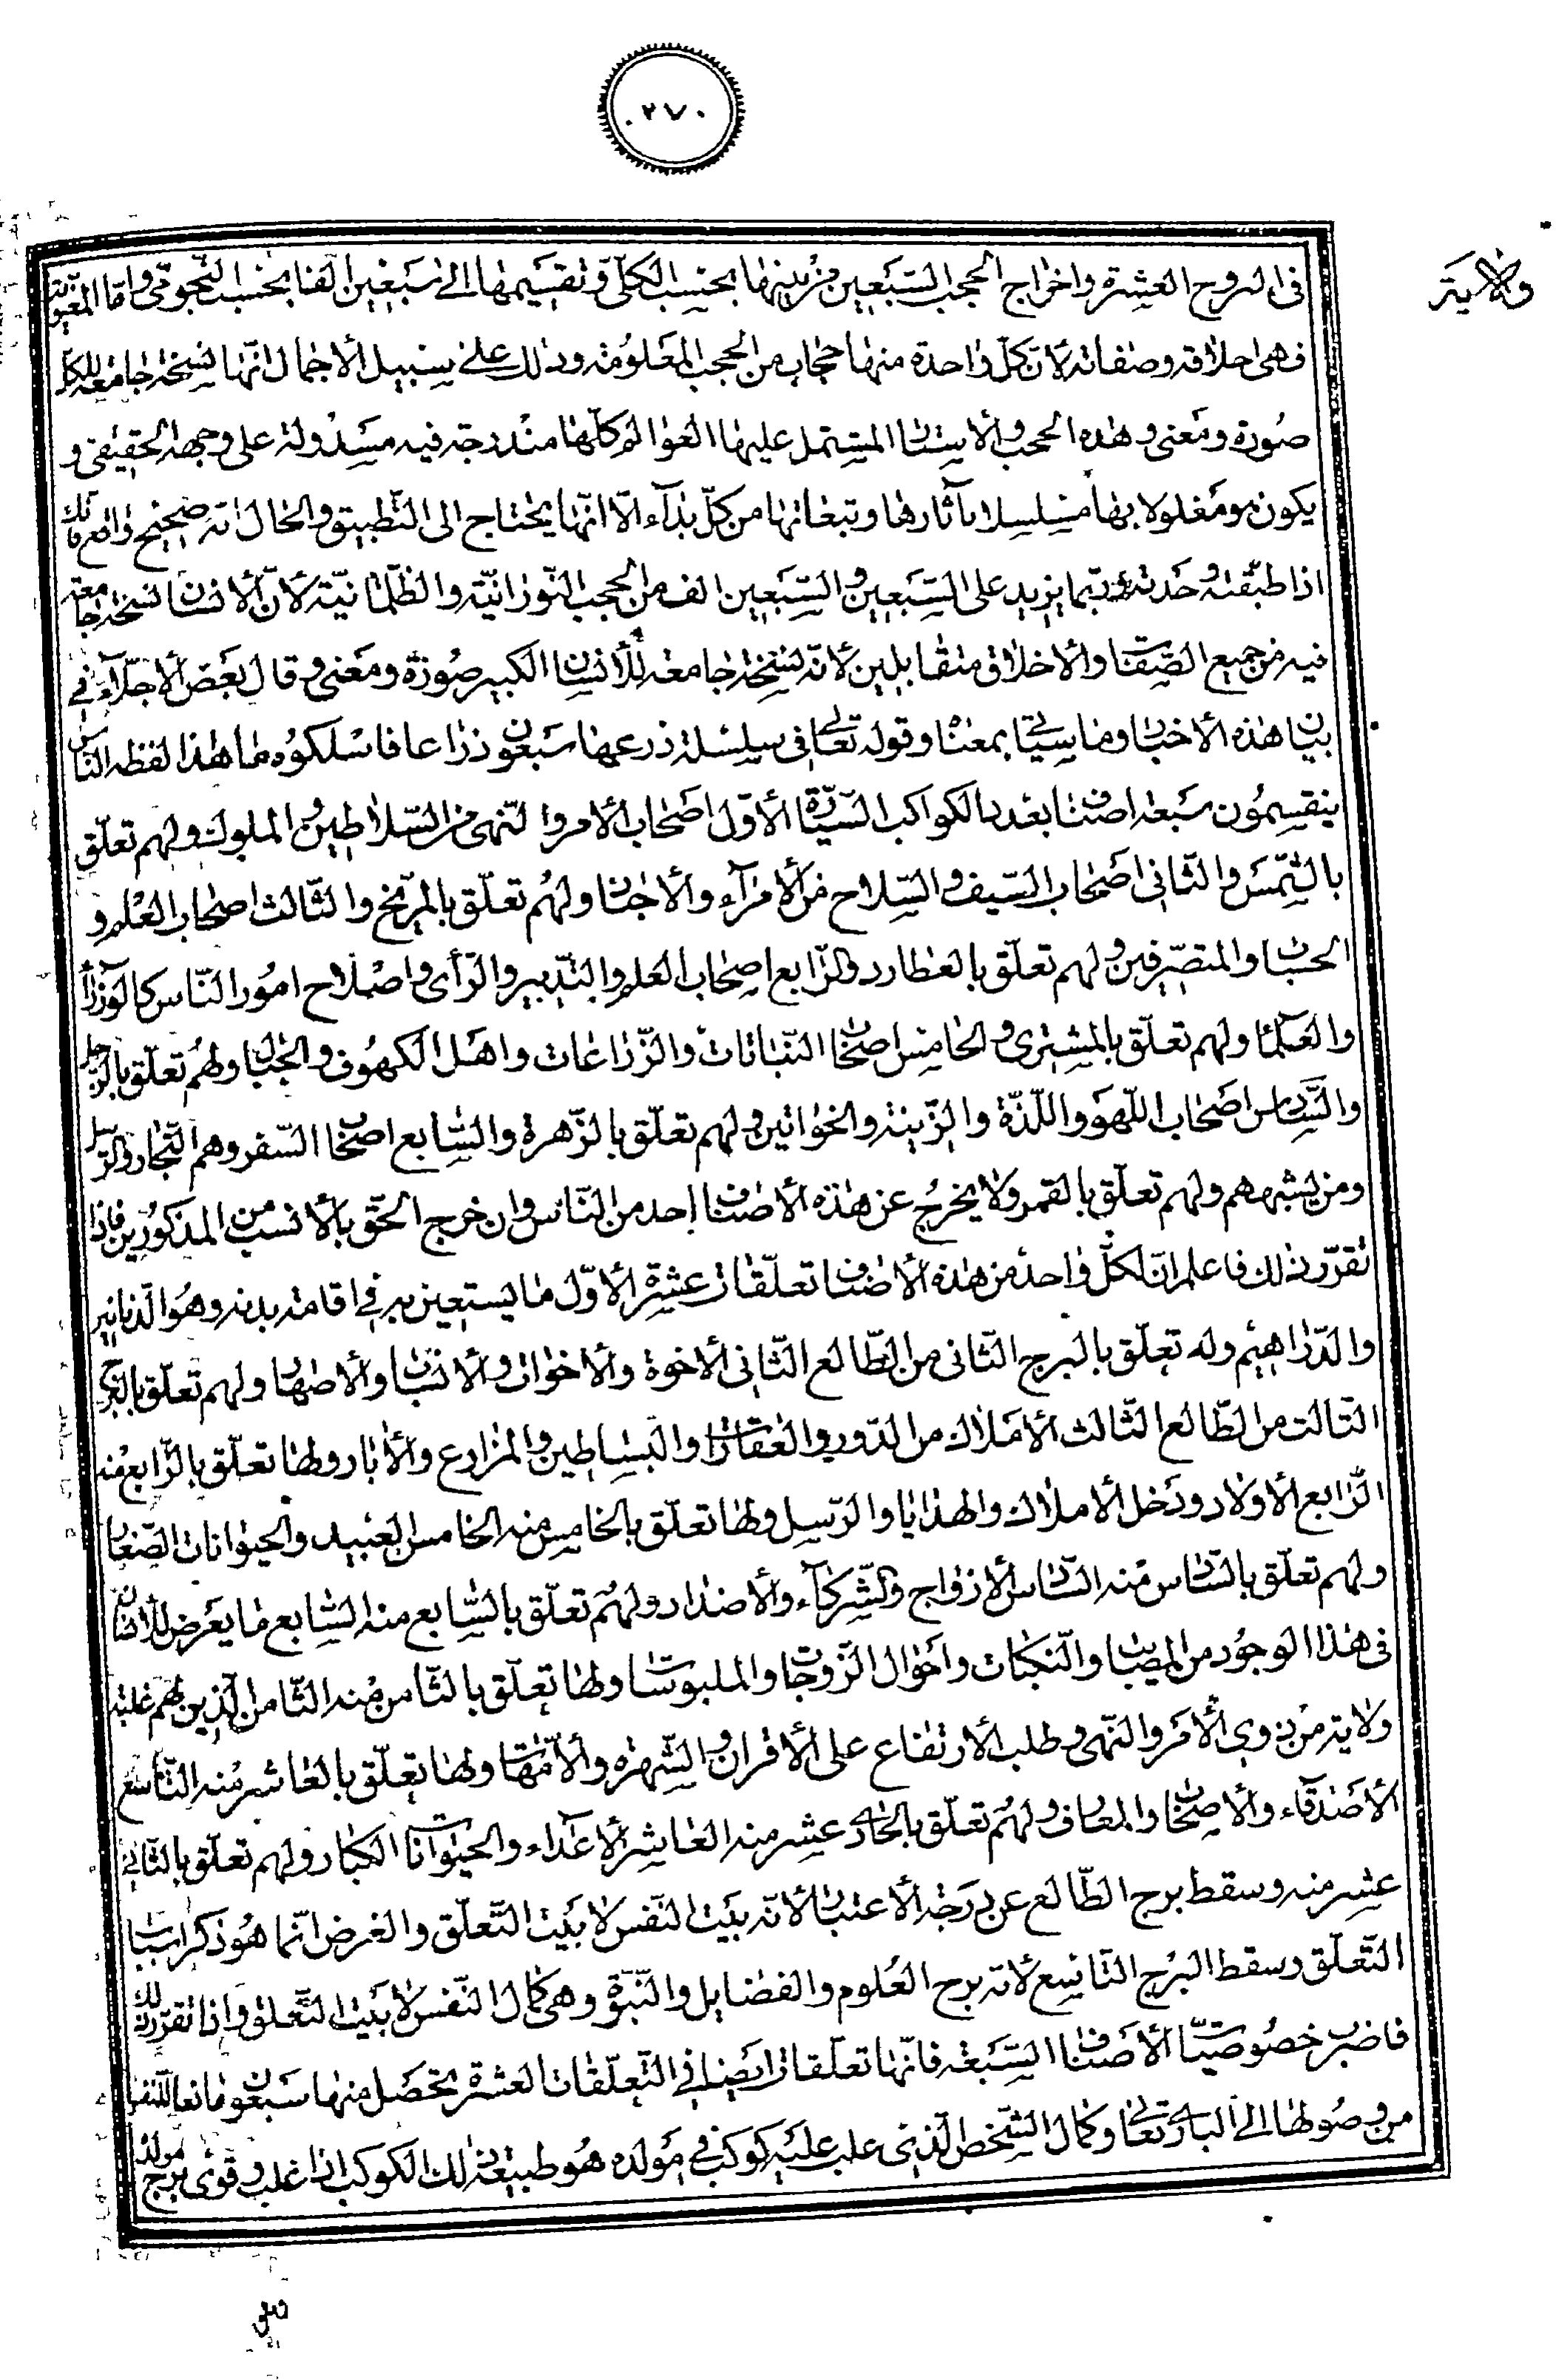 ٢٧٠
ولاية
فى البروج العشرة واخراج الحجب السبعين من بينها بحسب الكلّى وتقسيمها الى سبعين الفا بحسب النجومى وامّا المعنوية
فهى اخلاقه وصفاته لانّ كلّ واحدة منها حجاب من الحجب المعلومة وذلك على سبيل الاجمال انّها نسخة جامعة للكل
صورة ومعنى وهذه الحجب والاستار المشتمل عليها العوالم كلّها مندرجة فيه مسدولة على وجهه الحقيقى و
يكون هو مغلولا بها مسلسلا بآثارها وتبعاتها من كلّ بدآء الّا انّها يحتاج الى التّطبيق والحال انّه صحيح واقع فانّك
اذا طبّقته وحدته وربّما يزيد على السّبعين والسّبعين الف من الحجب النّورانيّة والظّلمانيّة لانّ الانسان نسخة جامعة
فيه من جميع الصّفات والاخلاق متقابلين لانّه نسخة جامعة للانسان الكبير صورة ومعنى وقال بعض الاجلّاء فى
بيان هذه الاخبار وما سيأتى بمعناه وقوله تعالى فى سلسلة ذرعها سبعون ذراعا فاسلكوه ما هذا لفظه النّاس
ينقسمون سبعة اصناف بعدد الكواكب السّيّارة الاوّل اصحاب الامر والنّهى من السّلاطين والملوك ولهم تعلّق
بالشّمس والثّانى اصحاب السّيف والسّلاح من الامرآء والاجناد ولهم تعلّق بالمرّيخ والثّالث اصحاب العلم و
الحساب والمتصرّفين ولهم تعلّق بالعطارد والرّابع اصحاب العلم والتّدبير والرّأى واصلاح امور النّاس كالوزرآء
والعلمآء ولهم تعلّق بالمشترى والخامس اصحاب النّباتات والزّراعات واهل الكهوف والجبال ولهم تعلّق بالزّحل
والسّادس اصحاب اللّهو واللّذّة والزّينة والخواتين ولهم تعلّق بالزّهرة والسّابع اصحاب السّفر وهم التّجار والرّسل
ومن يشبههم ولهم تعلّق بالقمر ولا يخرج عن هذه الاصناف احد من النّاس وان خرج الحق بالانسب من المذكورين فاذا
تقرّر ذلك فاعلم انّ لكلّ واحد من هذه الاصناف تعلّقات عشرة الاوّل ما يستعين به فى اقامة بدنه وهو الدّنانير
والدّراهيم وله تعلّق بالبرج الثّانى من الطّالع الثّانى الاخوة والاخوات والانساب والاصهار ولهم تعلّق بالبرج
الثّالث من الطّالع الثّالث الاملاك من الدّور والعقارات والبساطين والمزارع والآبار ولها تعلّق بالرّابع منه
الرّابع الاولاد ودخل الاملاك والهدايا والرّسل ولها تعلّق بالخامس منه الخامس العبيد والحيوانات الصّغار
ولهم تعلّق بالسّادس منه السّادس الازواج والشّركآء والاضداد ولهم تعلّق بالسّابع منه السّابع ما يعرض للانسان
فى هذا الوجود من المصيبات والنّكبات واحوال الزّوجات والملبوسات ولها تعلّق بالثّامن منه الثّامن الّذين لهم غلبة
ولاية من ذوى الامر والنّهى وطلب الارتفاع على الاقران والشّهرة والامّهات ولها تعلّق بالعاشر منه التّاسع
الاصدقآء والاصحاب والمعارف ولهم تعلّق بالحادى عشر منه العاشر الاعدآء والحيوانات الكبار ولهم تعلّق بالثّانى
عشر منه وسقط برج الطّالع عن درجة الاعتبار لانّه بيت النّفس لا بيت التّعلّق والغرض انّما هو ذكر اسباب
التّعلّق وسقط البرج التّاسع لانّه برج العلوم والفضايل والنّبوّة وهى كمال النّفس لا بيت التّعلّق واذا تقرّر ذلك
فاضرب خصوصيّات الاصناف السّبعة فانّها تعلّقات ايضا فى التّعلّقات العشرة يحصل منها سبعون مانعا للنّفس
من وصولها الى البارى تعالى وكمال الشّخص الّذى غلب عليه كوكب فى مولده هو طبيعة ذلك الكوكب اذا غلب وقوى برج مولده